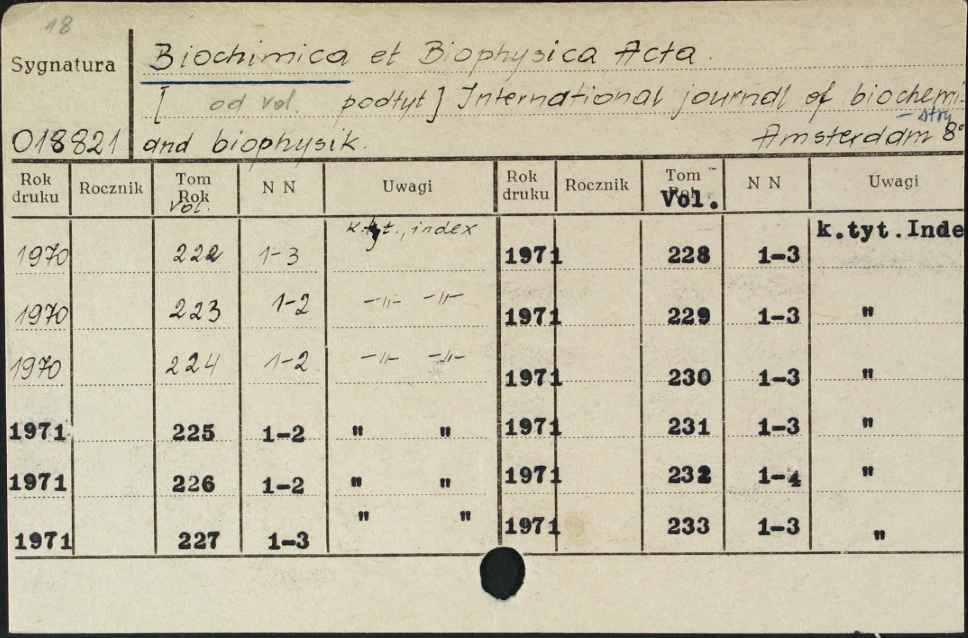 18
Sygnatura Biochimica et Biophysica Acta.
[ od vol. podtyt] International journal of biochemi-
018821 and biophysik. Amsterdam 8°
Rok druku Rocznik Tom Rok N N Uwagi Rok druku Rocznik Tom Rok N N Uwagi
vol. Vol.
1970 222 1-3 k.tyt., index 1971 228 1-3 k.tyt.Inde
1970 223 1-2 -"- -"- 1971 229 1-3 "
1970 224 1-2 -"- -"- 1971 230 1-3 "
1971 225 1-2 " " 1971 231 1-3 "
1971 226 1-2 " " 1971 232 1-4 "
1971 227 1-3 " " 1971 233 1-3 "